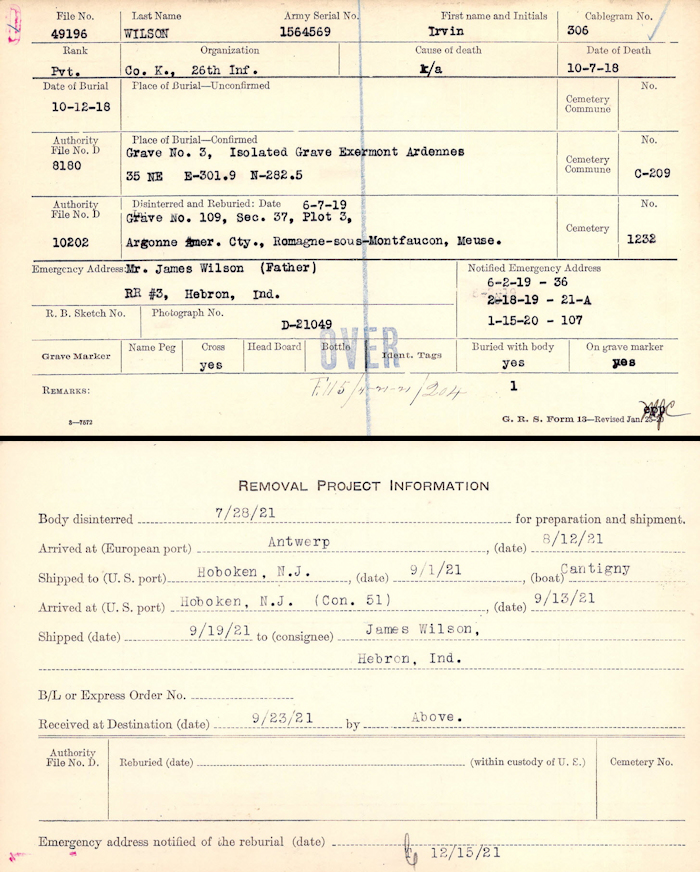 File No. Last Name Army Serial No. First name and Initials Cablegram No.
49196 WILSON 1564569 Irvin 306
Rank Organization Cause of death Date of Death
Pvt. Co. K., 26th Inf. k/a 10-7-18
Date of Burial Place of Burial—Unconfirmed Cemetery Commune No.
10-12-18
Authority File No. D Place of Burial—Confirmed Cemetery Commune No.
8180 Grave No. 3, Isolated Grave Exermont Ardennes
35 NE E-301.9 N-282.5 C-209
Authority File No. D Disinterred and Reburied: Date 6-7-19 No.
Grave No. 109, Sec. 37, Plot 3, Cemetery
10202 Argonne Amer. Cty., Romagne-sous-Montfaucon, Meuse. 1232
Emergency Address: Mr. James Wilson (Father) Notified Emergency Address
6-2-19 - 36
RR #3, Hebron, Ind. 2-18-19 - 21-A
R. B. Sketch No. Photograph No. 1-15-20 - 107
D-21049
OVER
Grave Marker Name Peg Cross Head Board Bottle Ident. Tags Buried with body On grave marker
yes yes yes
REMARKS: 1
3—7572 G. R. S. Form 13—Revised Jan.
REMOVAL PROJECT INFORMATION
Body disinterred 7/28/21 for preparation and shipment.
Arrived at (European port) Antwerp, (date) 8/12/21
Shipped to (U. S. port) Hoboken, N.J., (date) 9/1/21, (boat) Cantigny
Arrived at (U. S. port) Hoboken, N.J. (Con. 51), (date) 9/13/21
Shipped (date) 9/19/21 to (consignee) James Wilson,
Hebron, Ind.
B/L or Express Order No.
Received at Destination (date) 9/23/21 by Above.
Authority File No. D. Reburied (date) (within custody of U. S.) Cemetery No.
Emergency address notified of the reburial (date) 12/15/21